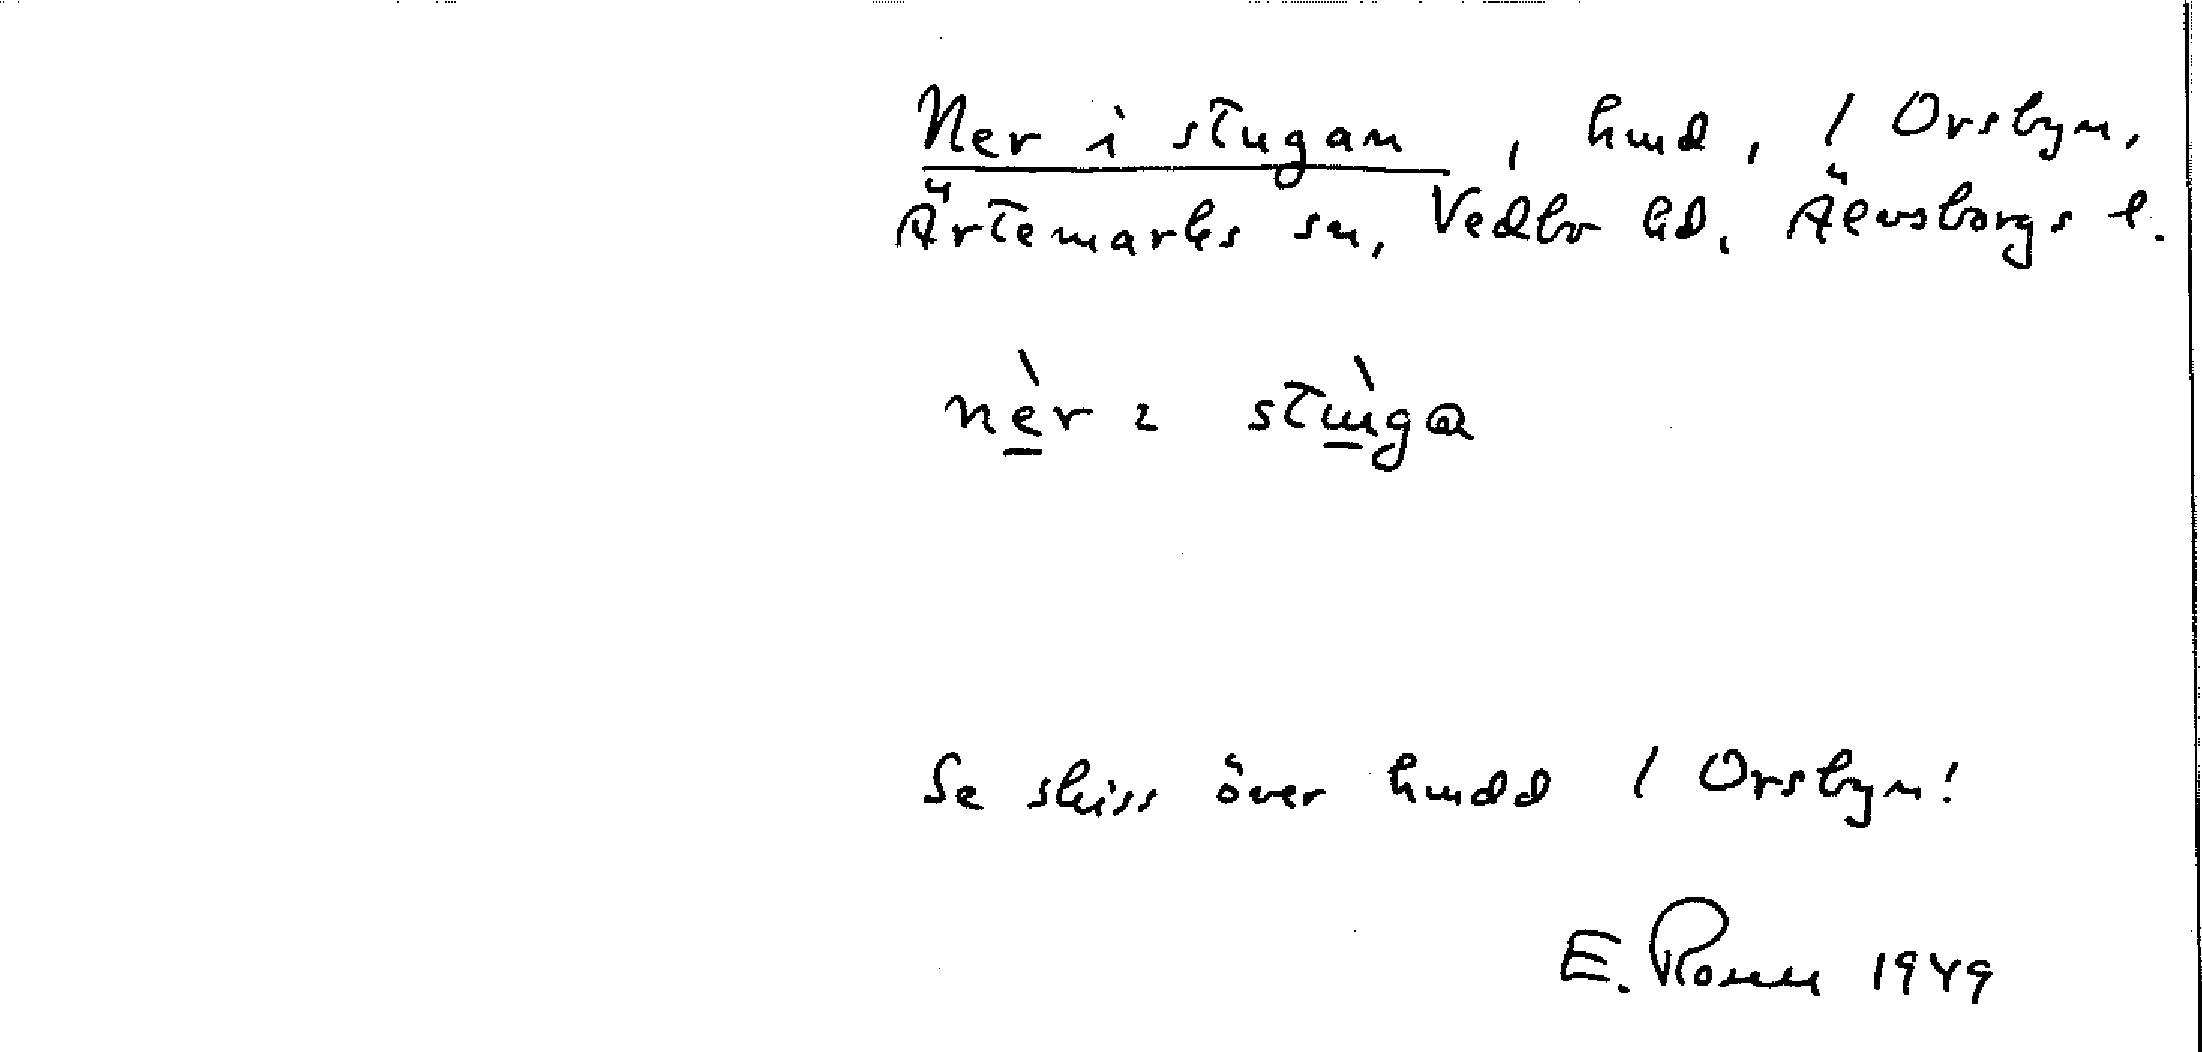 Ner i stugan, hmd, / Orsbyn,
Ärtemarks sn, Vedbo hd, Älvsborgs l.
nèr ɩ stɯ̀gɑ
Se skiss över hmdd / Orsbyn!
E. Rosell 1949